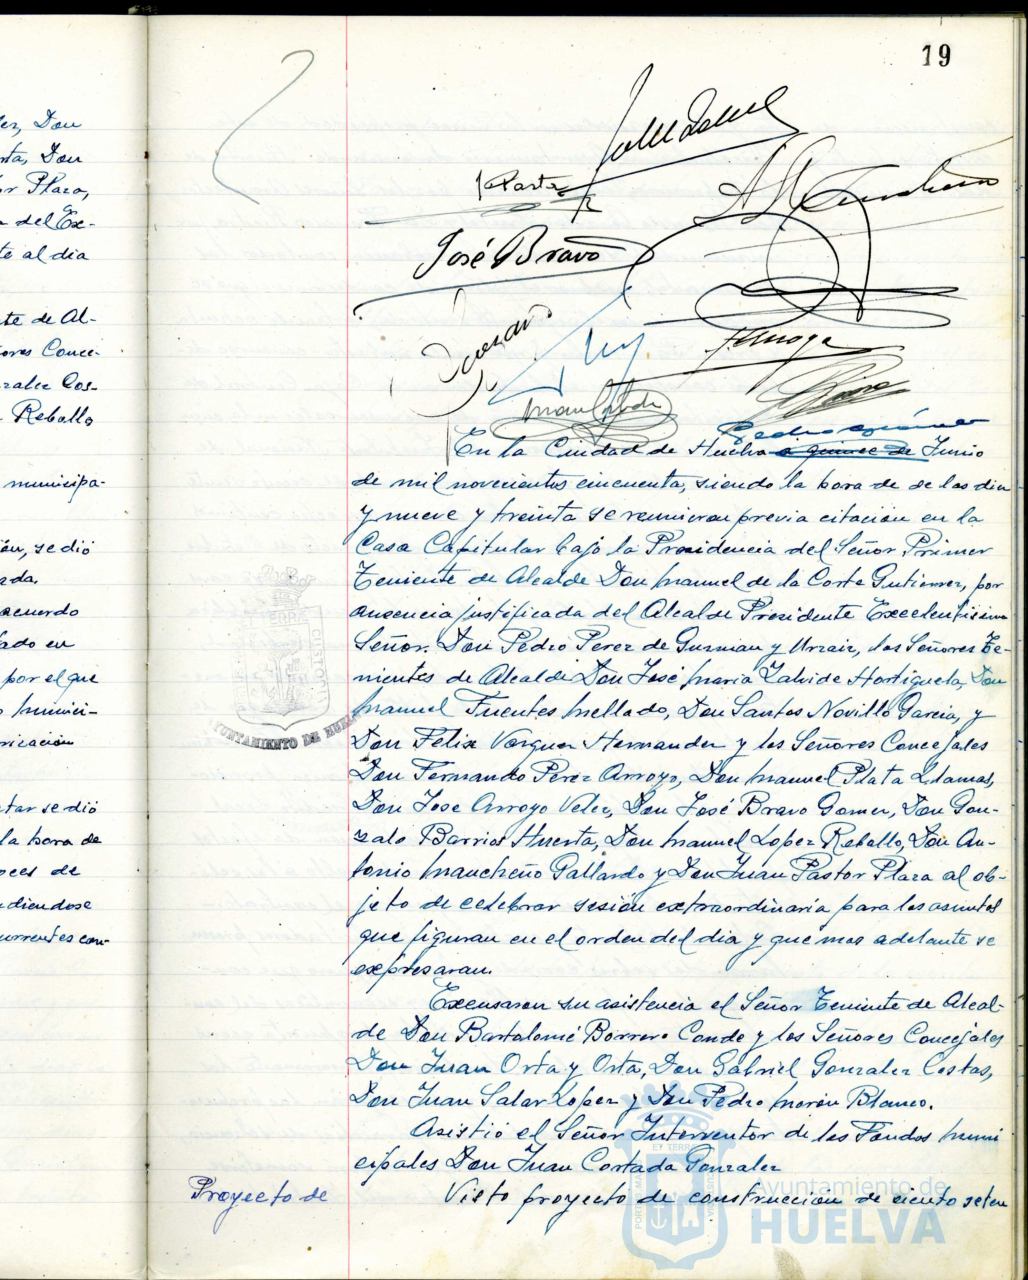 19
José Bravo
En la Ciudad de Huelva a quince de Junio
de mil novecientos cincuenta, siendo la hora de de las diez
y nueve y treinta se reunieron previa citación en la
Casa Capitular bajo la Presidencia del Señor Primer
Teniente de Alcalde Don Manuel de la Corte Gutierrez, por
ausencia justificada del Alcalde Presidente Excelentisimo
Señor. Don Pedro Perez de Guzman y Urzaiz, los Señores Te-
nientes de Alcalde Don José Maria Zahide Hortigüela, Don
Manuel Fuentes Mellado, Don Santos Novillo Garcia, y
Don Felix Vazquez Hernandez y los Señores Concejales
Don Fernando Perez Arroyo, Don Manuel Plata Llamas,
Don Jose Arroyo Velez, Don José Bravo Gomez, Don Gon-
zalo Barrios Huerta, Don Manuel Lopez Reballo, Don An-
tonio Mancheño Gallardo y Don Juan Pastor Plaza al ob-
jeto de celebrar sesión extraordinaria para los asuntos
que figuran en el orden del dia y que mas adelante se
expresaran.
Excusaron su asistencia el Señor Teniente de Alcal-
de Don Bartolomé Borrero Conde y los Señores Concejales
Don Juan Orta y Orta, Don Gabriel Gonzalez Costas,
Don Juan Salar Lopez y Don Pedro Morón Blanco.
Asistió el Señor Interventor de los Fondos muni
cipales Don Juan Cortada Gonzalez
Proyecto de
Visto proyecto de construccion de ciento seten
AYUNTAMIENTO DE HUELVA
Ayuntamiento de
HUELVA
er, Don
rta, Don
or Plaza,
a del Ex-
te al dia
nte de Al-
ñores Conce-
nzalez Cos-
z Reballo
municipa-
ión, se dió
ada.
acuerdo
tado en
por el que
o munici-
rización
tar se dió
la hora de
oces de
ndiendose
urrentes con-